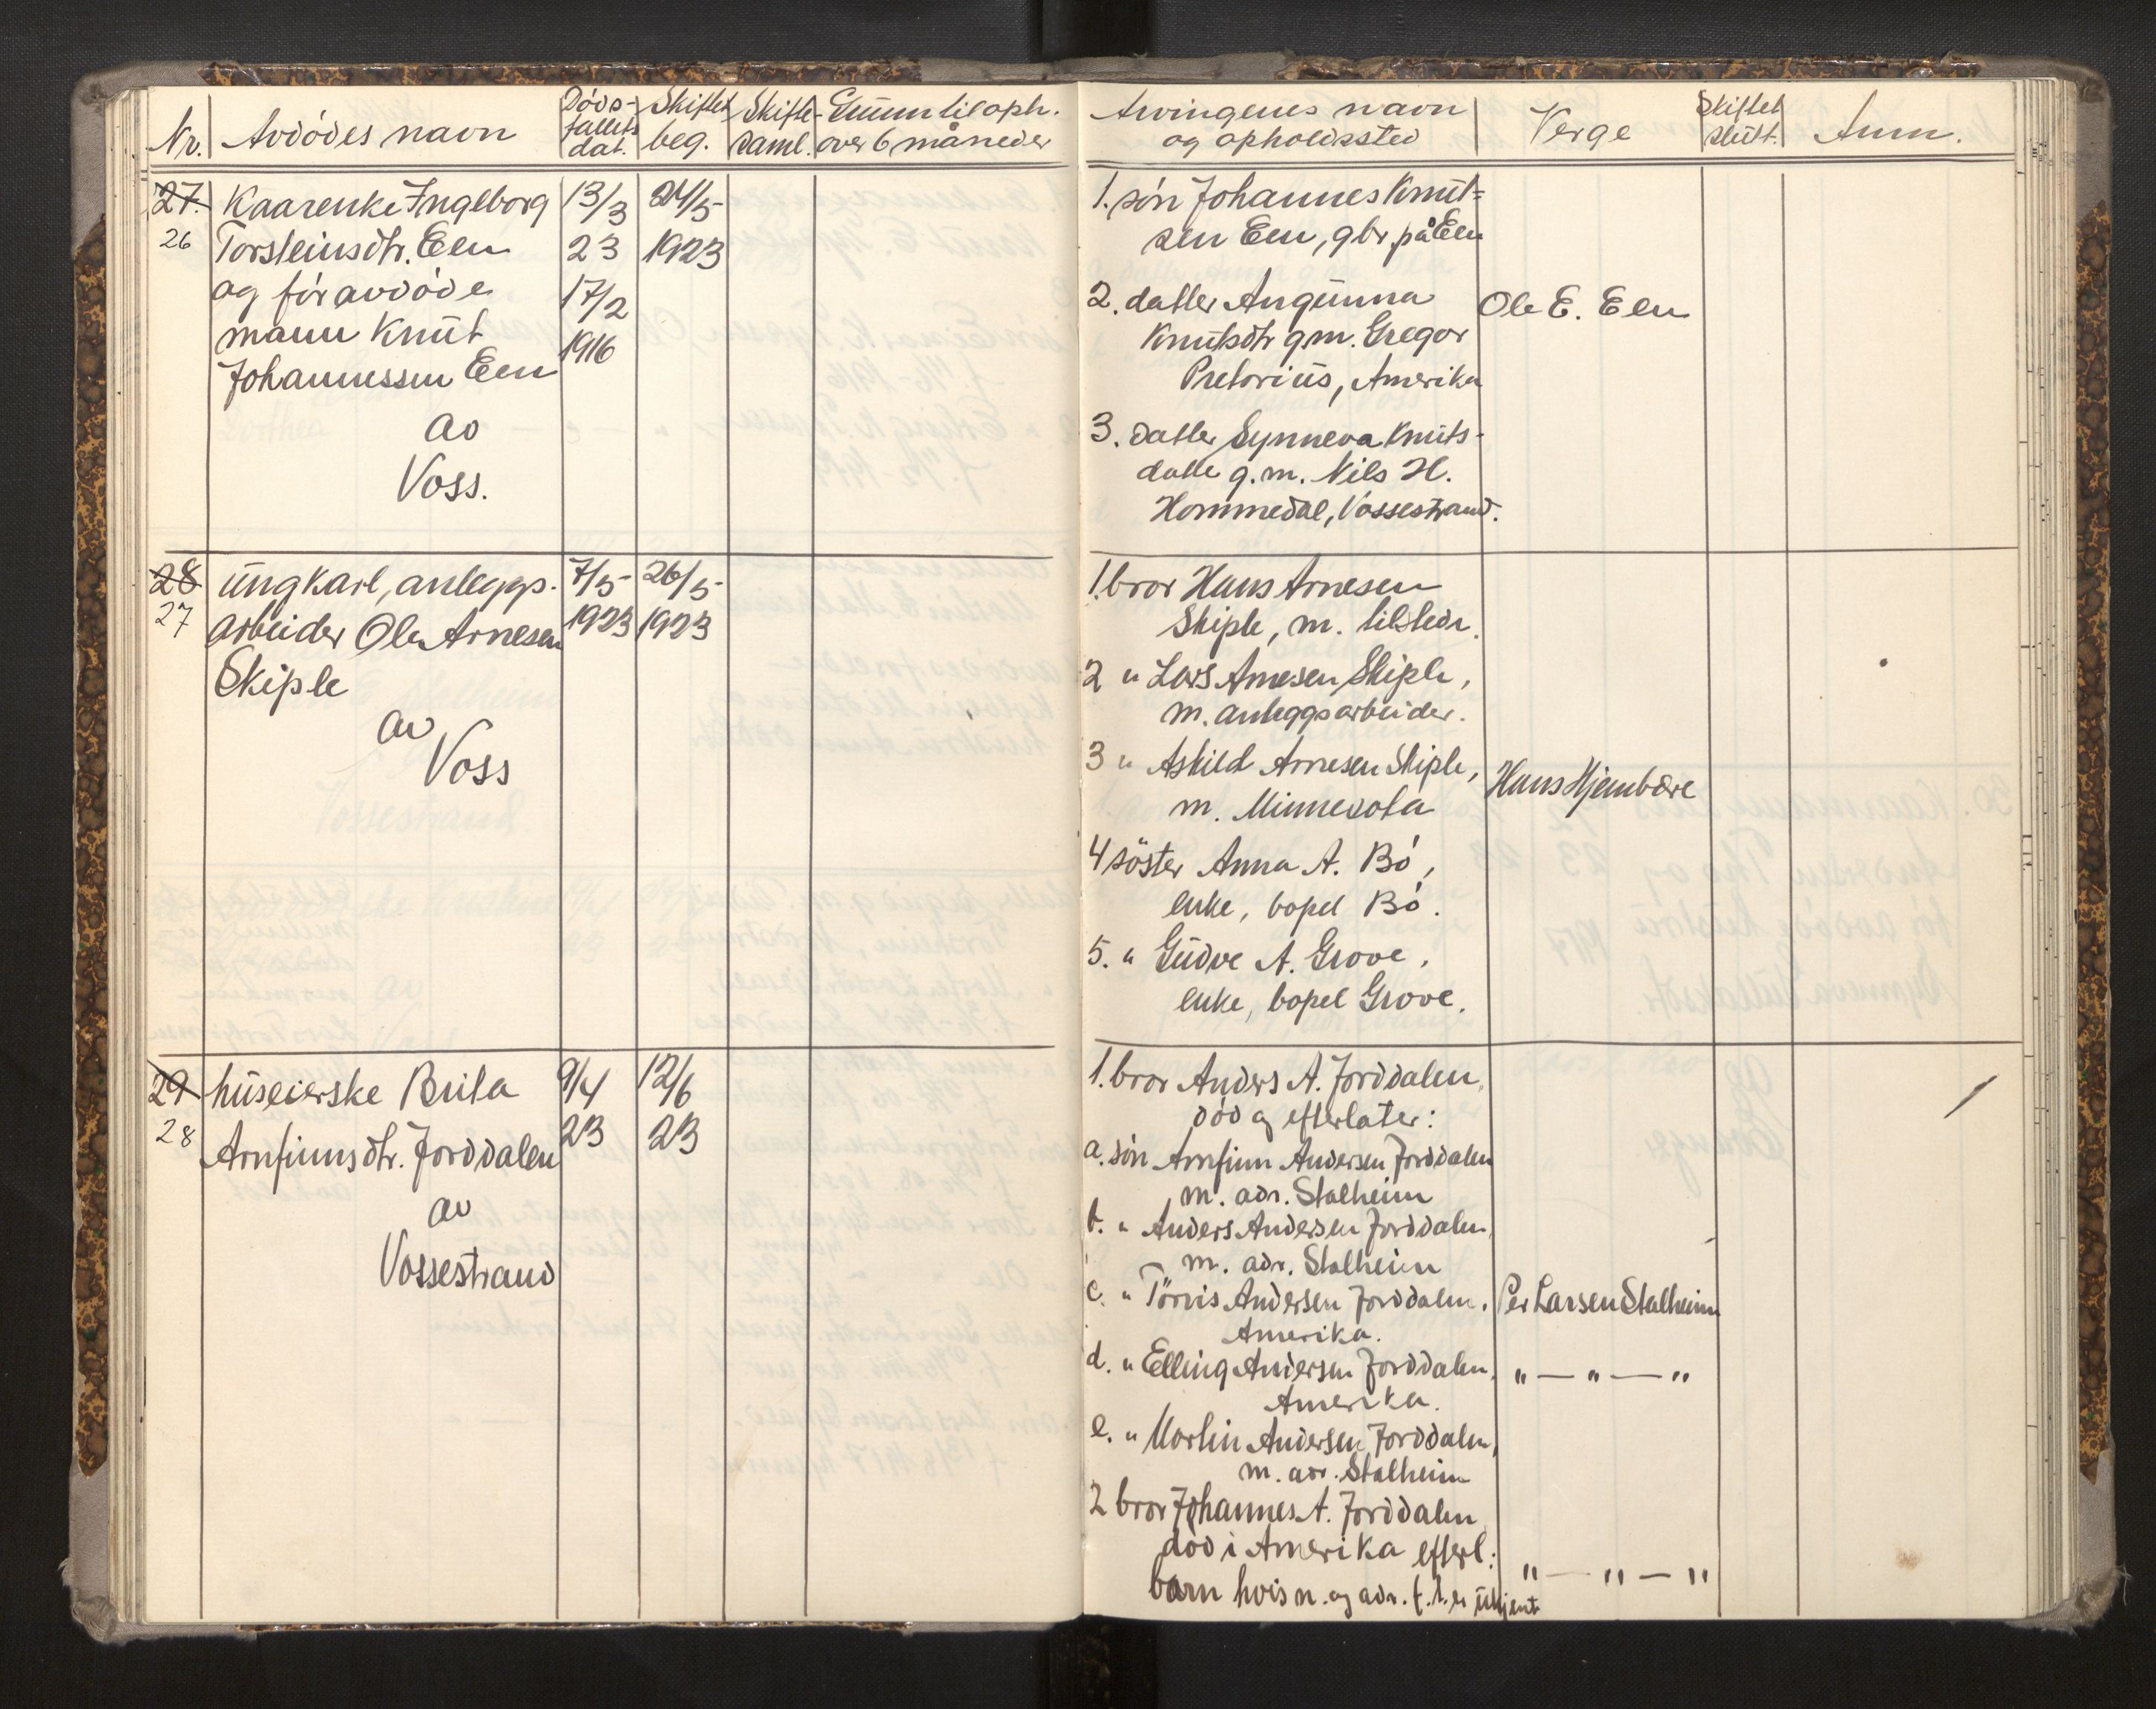 Nr. Avdödes navn Döds- Skiftet Skifte- Grunn til oph.
fallets beg. saml. over 6 måneder
dat.
27. Kaarenke Ingeborg 13/3 24/5
26 Torsteinsdtr. Een 23 1923
og för avdöde 17/2
mann Knut 1916
Johannessen Een
av
Voss.
28 ungkarl, anleggs- 7/5 26/5
27 arbeider Ole Arnesen 1923 1923
Skiple
av
Voss
29 huseierske Brita 9/4 12/6
28 Arnfinnsdtr. Jorddalen 23 23
av
Vossestrand
Arvingenes navn Verge Skiftet Anm.
og opholdssted slutt.
1. sön Johannes Knut=
sen Een, gbr. på Een
2. datter Angunna Ole E. Een
Knutsdtr g.m. Gregor
Pretorius, Amerika
3. datter Synneva Knuts-
datter g.m. Nils H.
Hommedal, Vossestrand.
1. bror Hans Arnesen
Skiple, m. tilstede.
2 " Lars Arnesen Skiple,
m. anleggsarbeider.
3 " Askild Arnesen Skiple, Hans Hjemböre
m. Minnesota
4 söster Anna A. Bö,
enke, bopel Bö.
5. " Gudve A. Grove,
enke, bopel Grove.
1. bror Anders A. Jorddalen,
död og efterlater:
a. sön Arnfinn Andersen Jorddalen
m. adr. Stalheim
b. " Anders Andersen Jorddalen,
m. adr. Stalheim
c. " Andersen Jorddalen, Per Larsen Stalheim
Amerika.
d. " Elling Andersen Jorddalen, " — " — "
Amerika.
e. " Martin Andersen Jorddalen,
m. adr. Stalheim
2 bror Johannes A. Jorddalen
död i Amerika efterl:
barn hvis n. og adr. f.t. er ukjent " — " — "